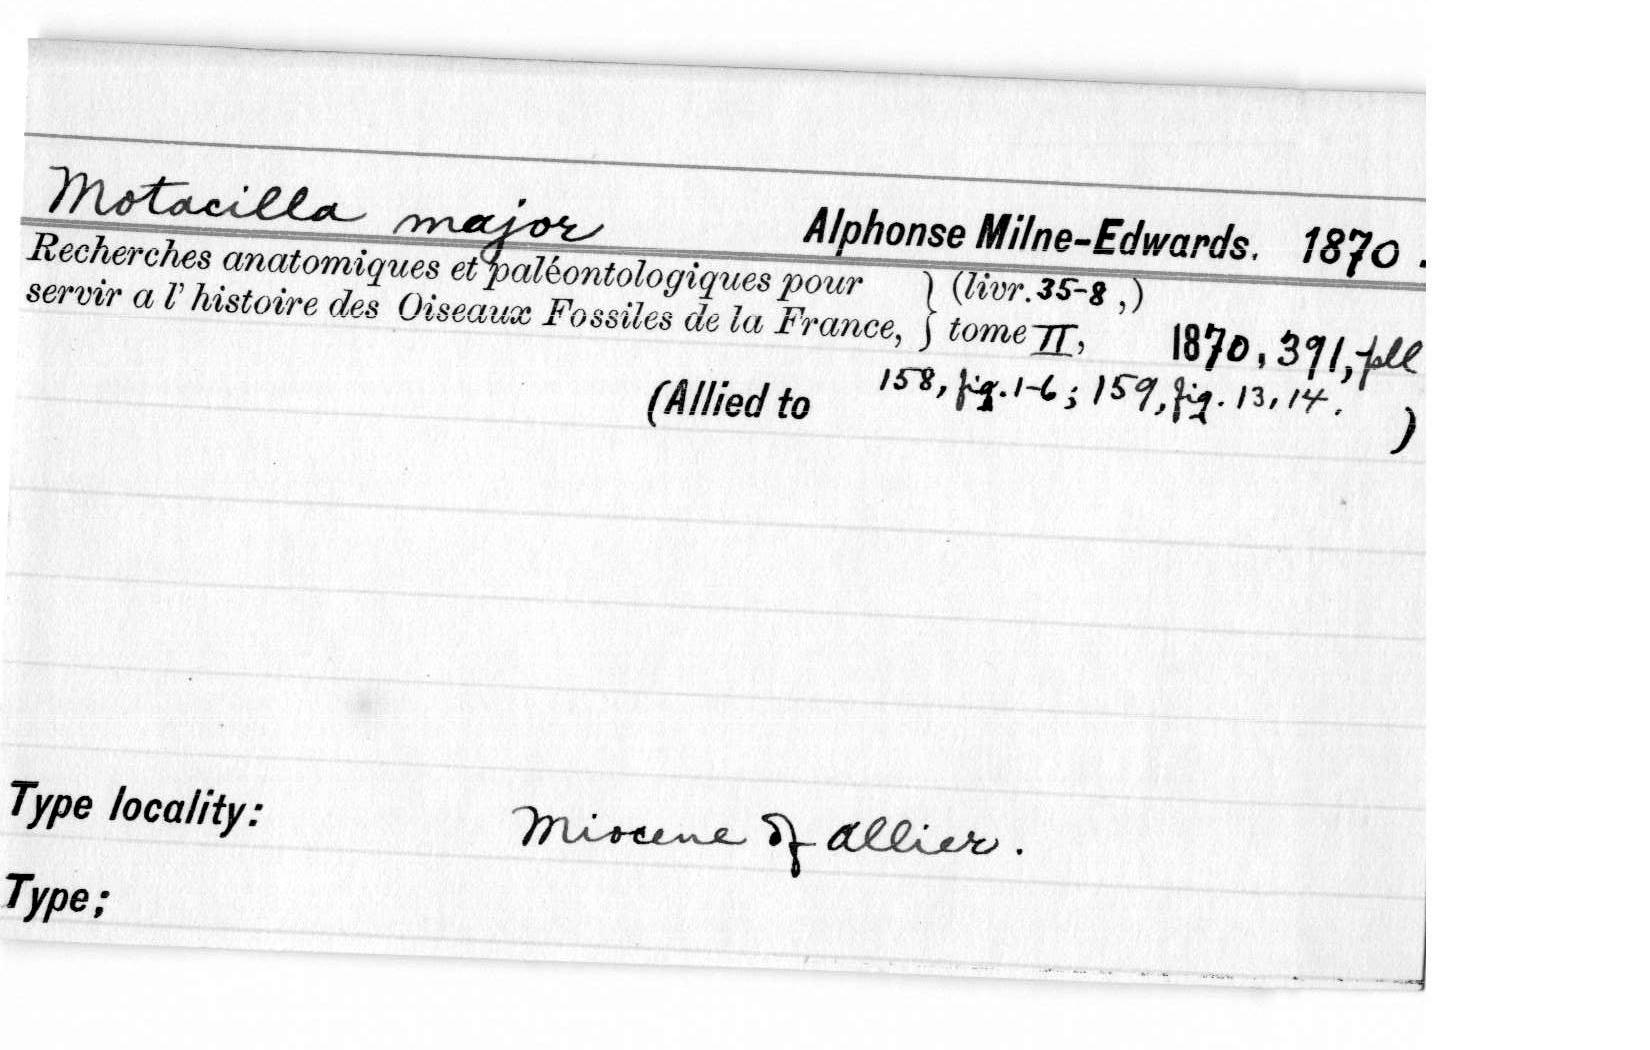 Motacilla major Alphonse Milne-Edwards. 1870.
Recherches anatomiques et paléontologiques pour } (livr. 35-8,)
servir a l' histoire des Oiseaux Fossiles de la France, } tome II, 1870, 391, pll
(Allied to 158, fig. 1-6; 159, fig. 13, 14. )
Type locality: Miocene of Allier.
Type;